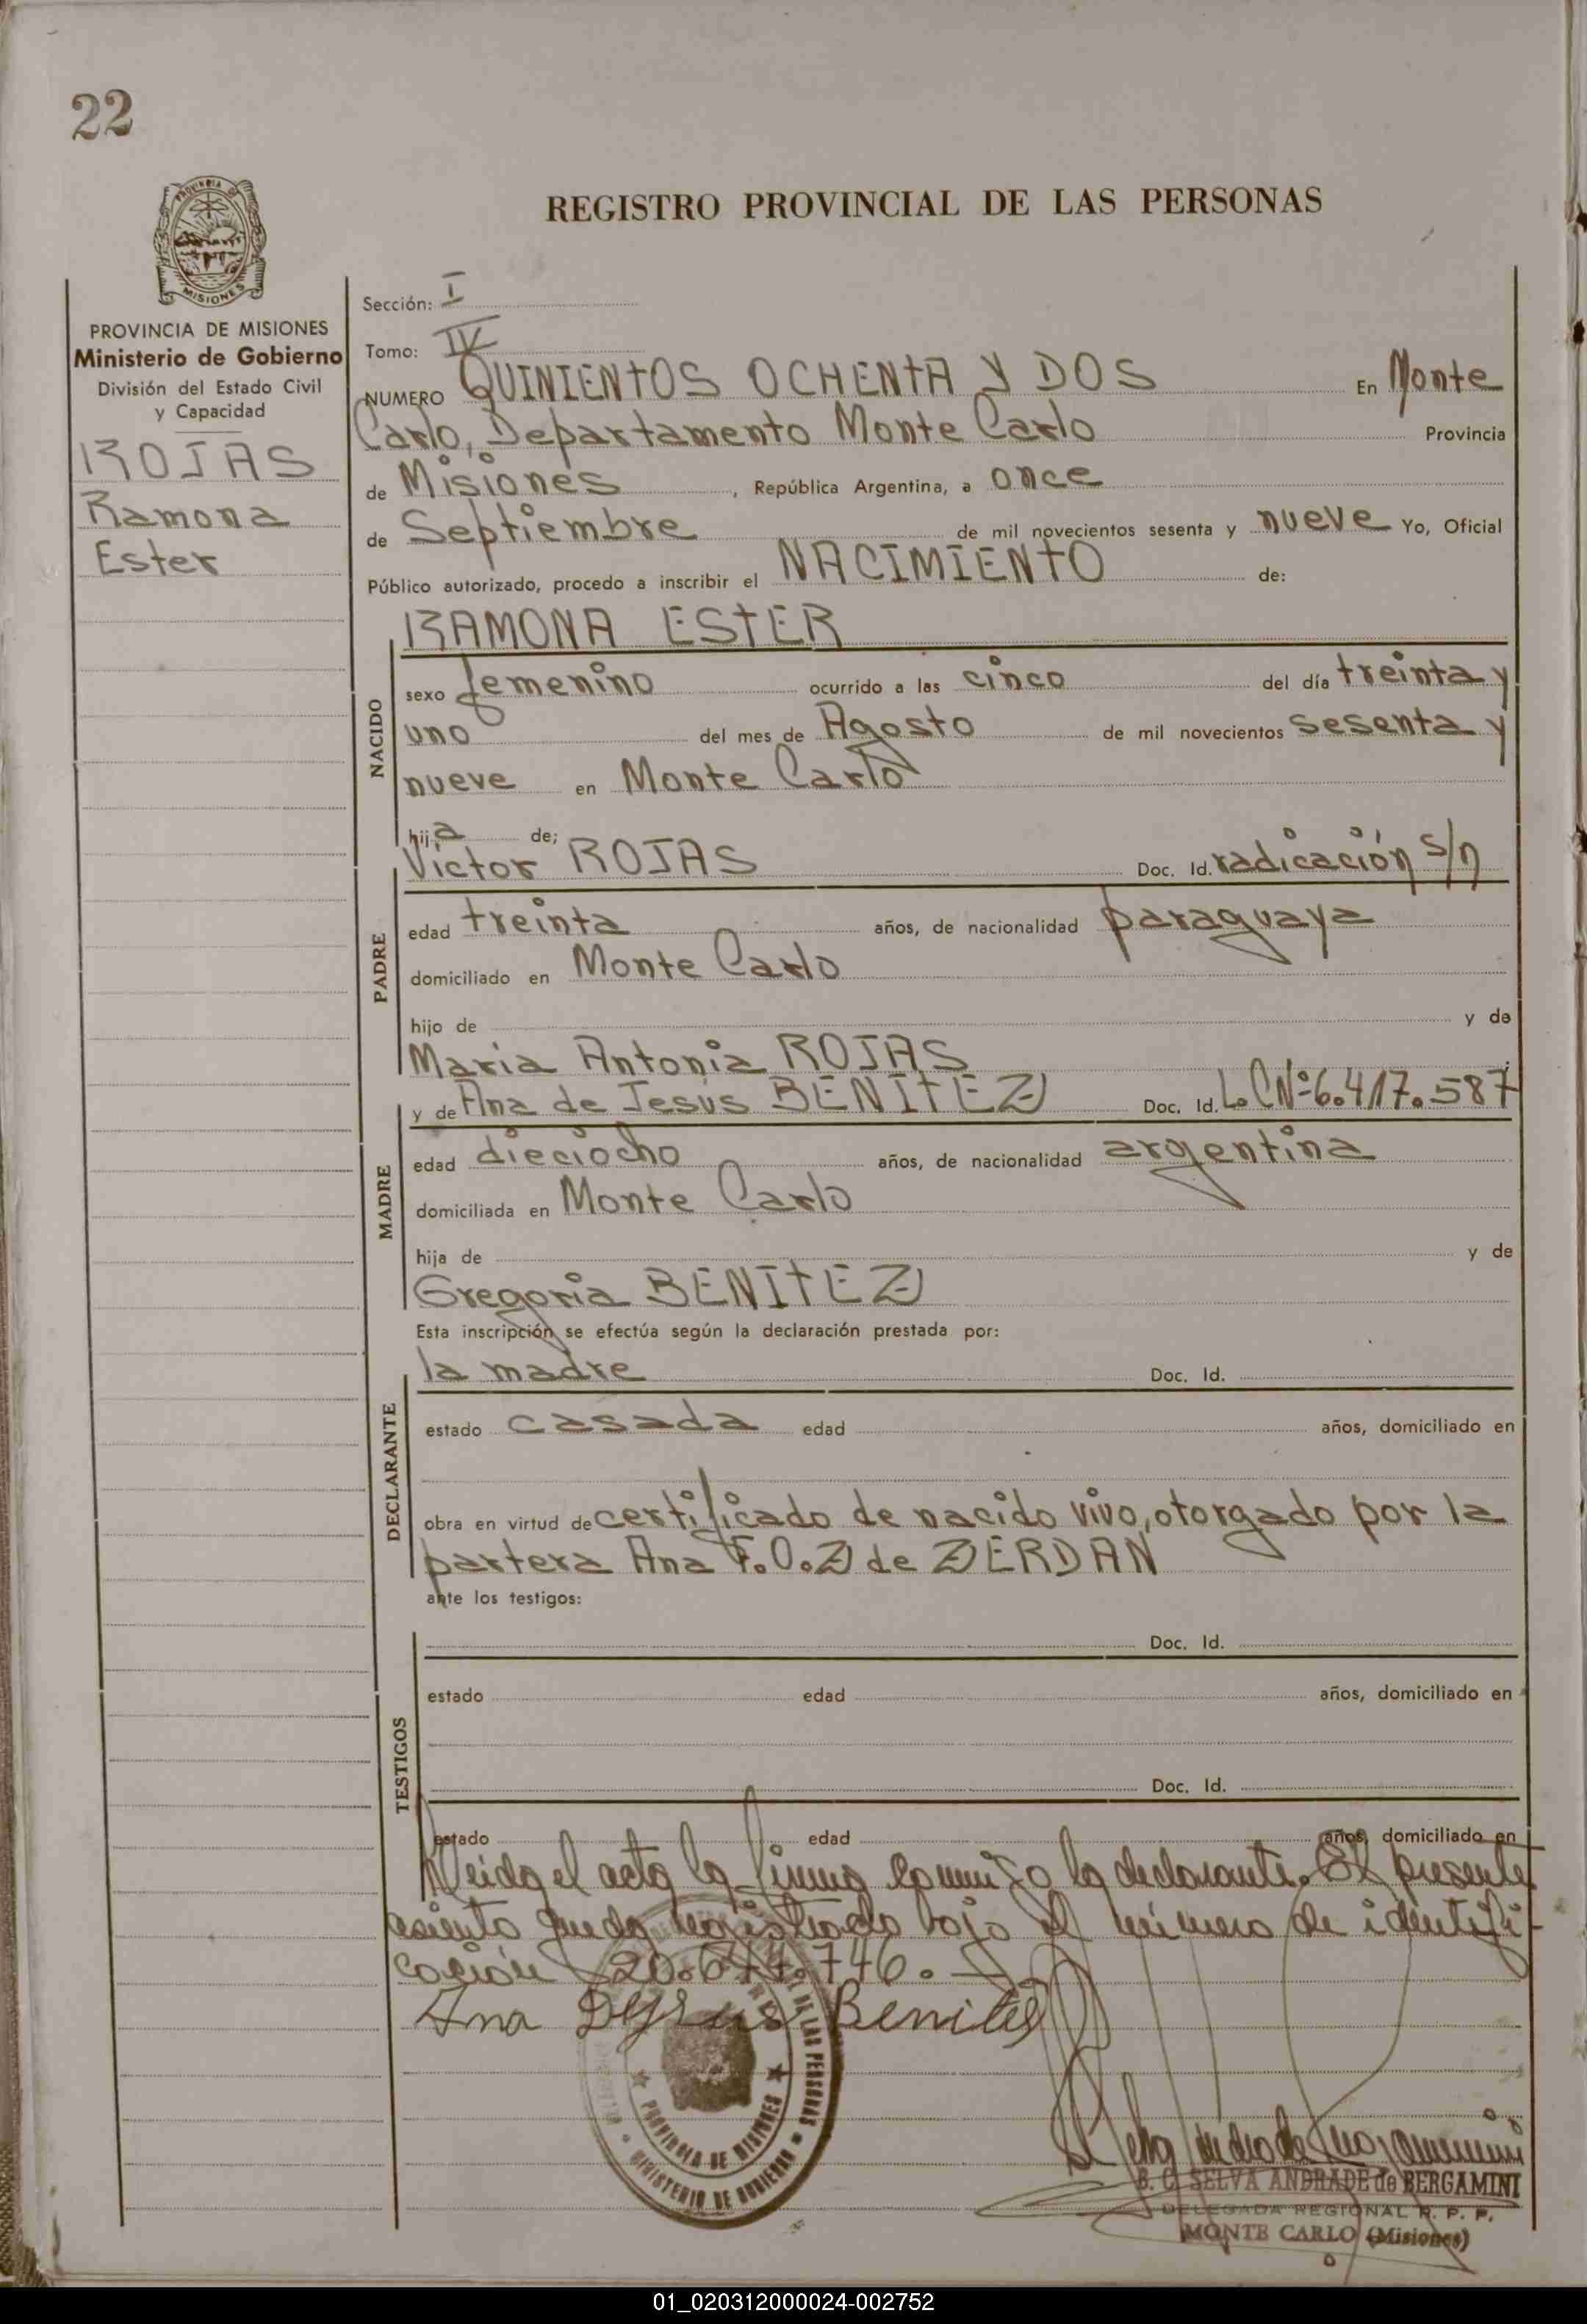 22
REGISTRO PROVINCIAL DE LAS PERSONAS
PROVINCIA DE MISIONES
Ministerio de Gobierno
División del Estado Civil
y Capacidad
ROJAS
Ramona
Ester
Sección: I
Tomo: IV
NUMERO QUINIENTOS OCHENTA Y DOS En Monte
Carlo, Departamento Monte Carlo Provincia
de Misiones, República Argentina, a once
de Septiembre de mil novecientos sesenta y nueve Yo, Oficial
Público autorizado, procedo a inscribir el NACIMIENTO de:
NACIDO
RAMONA ESTER
sexo femenino ocurrido a las cinco del día treinta y
uno del mes de Agosto de mil novecientos sesenta y
nueve en Monte Carlo
hija de;
PADRE
Victor ROJAS Doc. Id. radicación s/n
edad treinta años, de nacionalidad paraguaya
domiciliado en Monte Carlo
hijo de y de
Maria Antonia ROJAS
MADRE
y de Ana de Jesús BENITEZ Doc. Id. L.C Nº 6.417.587
edad dieciocho años, de nacionalidad argentina
domiciliada en Monte Carlo
hija de y de
Gregoria BENITEZ
Esta inscripción se efectúa según la declaración prestada por:
DECLARANTE
la madre Doc. Id.
estado casada edad años, domiciliado en
obra en virtud de certificado de nacido vivo, otorgado por la
partera Ana F.O.Z de ZERDAN
ante los testigos:
TESTIGOS
Doc. Id.
estado edad años, domiciliado en
Doc. Id.
estado edad años, domiciliado en
Leida el acta la firma conmigo la declarante. El presente
asiento queda registrado bajo el número de identifi-
cación 20.644.746.-
Ana Benitez
PROVINCIA DE MISIONES
MINISTERIO DE GOBIERNO
B. C. SELVA ANDRADE de BERGAMINI
DELEGADA REGIONAL R. P. P.
MONTE CARLO (Misiones)
01_020312000024-002752